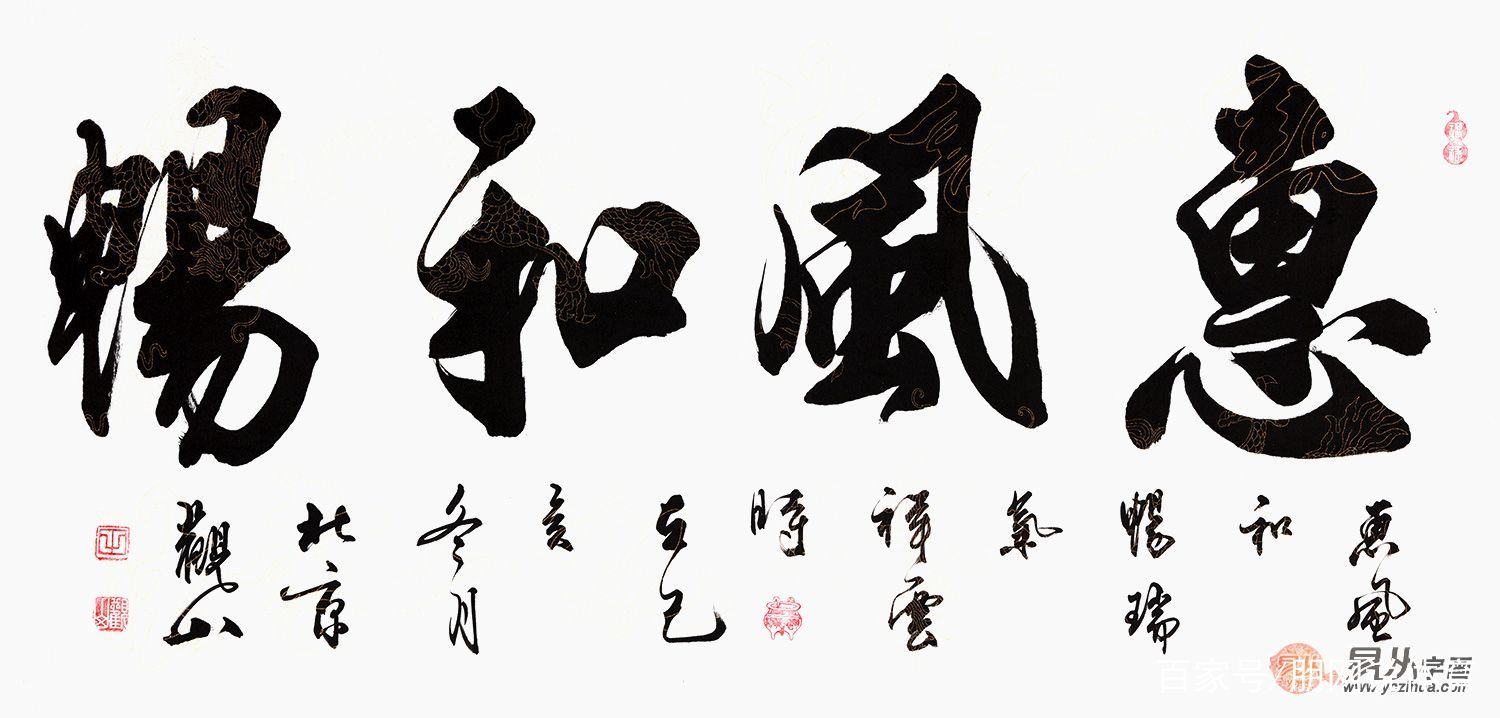 惠風和暢
惠風
和
暢瑞
氣
祥雲
時
在己
亥
冬月
北京
觀山
百家号/
www.yczihua.com